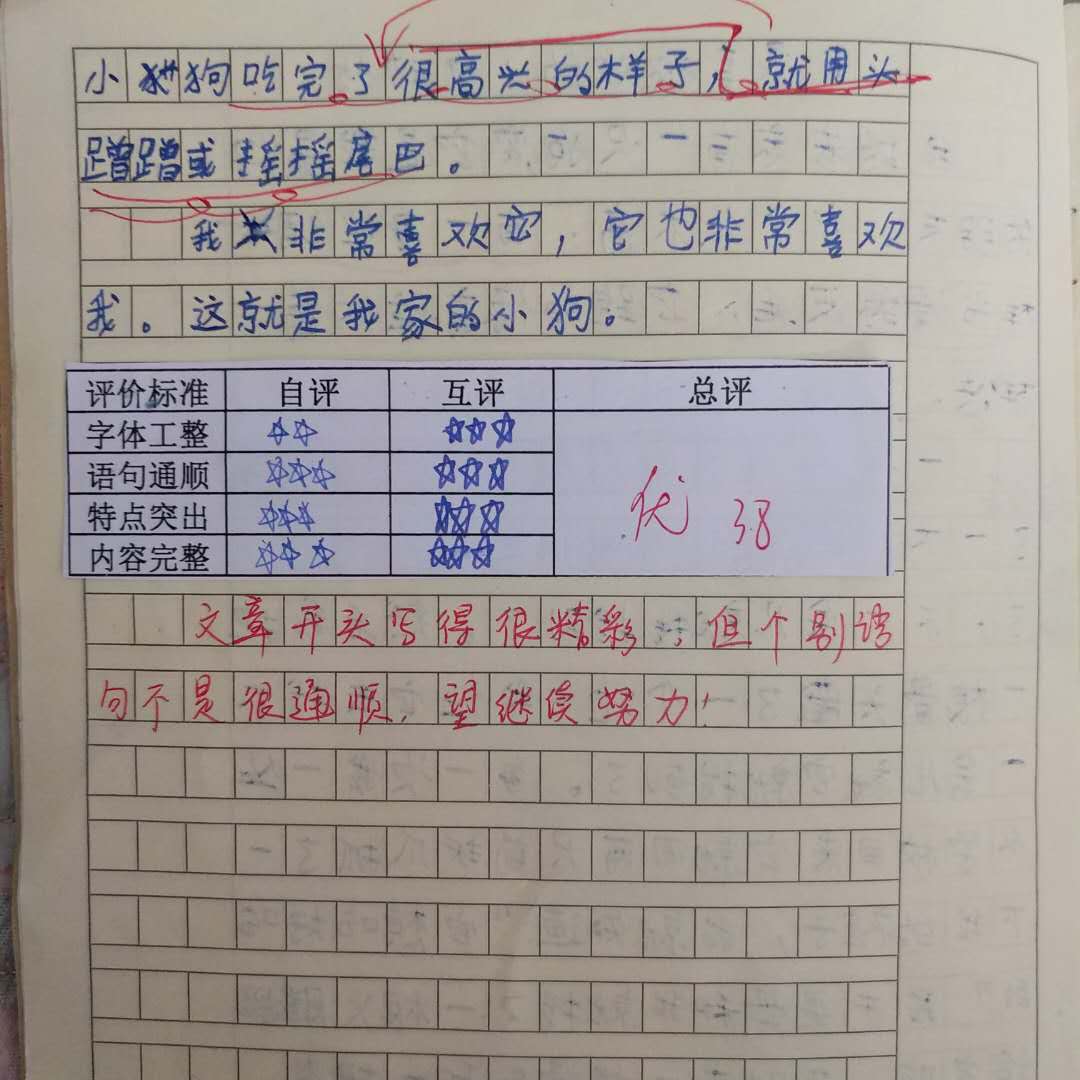 小狗吃完了很高兴的样子，就用头
蹭蹭或摇摇尾巴。
我非常喜欢它，它也非常喜欢
我。这就是我家的小狗。
评价标准 自评 互评 总评
字体工整 ☆☆ ☆☆☆
语句通顺 ☆☆☆ ☆☆☆
特点突出 ☆☆☆ ☆☆☆
内容完整 ☆☆☆ ☆☆☆
优 38
文章开头写得很精彩，但个别语
句不是很通顺，望继续努力！